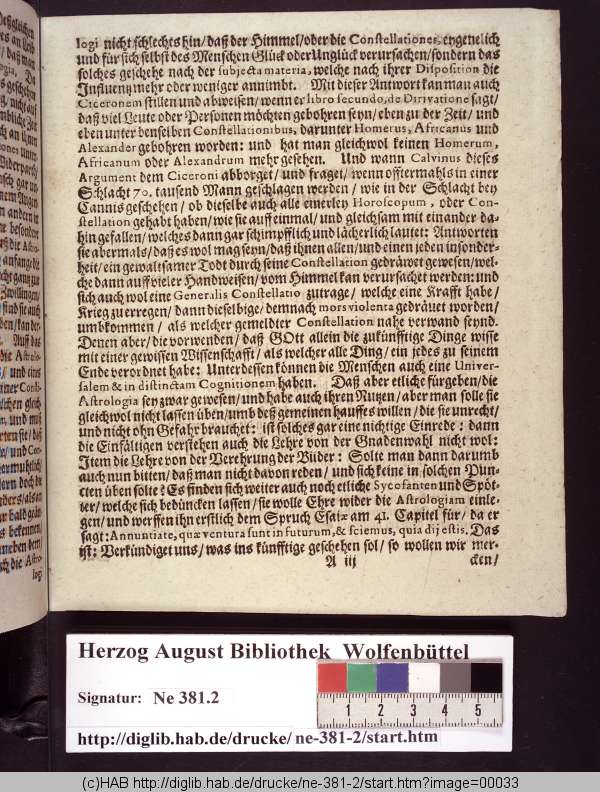 logi nicht schleches hin/ daß der Himmel/ oder die Constellationes, eygenelich
und für sich selbst des Menschen Glück oder Unglück verursachen/ sondern das
solches geschehe nach der subjecta materia, welche nach ihrer Disposition die
Influentz mehr oder weniger annimbt. Mit dieser Antwort kan man auch
Ciceronem stillen und abweisen/ wenn er libro secundo, de Divinatione sagt/
daß viel Leute oder Personen möchten gebohren seyn/ eben zu der Zeit/ und
eben unter denselben Constellationibus, darunter Homerus, Africanus und
Alexander gebohren worden: und hat man gleichwol keinen Homerum,
Africanum oder Alexandrum mehr gesehen. Und wann Calvinus dieses
Argument dem Ciceroni abborget/ und fraget/ wenn offtermahls in einer
Schlacht 70. tausend Mann geschlagen werden/ wie in der Schlacht bey
Cannis geschehen/ ob dieselbe auch alle einerley Horoscopum, oder Con-
stellation gehabt haben/ wie sie auff einmal/ und gleichsam mit einander da-
hin gefallen/ welches dann gar schimpflich und lächerlich lautet: Antworten
sie abermals/ daß es wol mag seyn/ daß ihnen allen/ und einen jeden insonder-
heit/ ein gewaltsamer Todt durch seine Constellation gedräwet gewesen/ wel-
che dann auff vieler Handweisen/ vom Himmel kan verursachet werden: und
sich auch wol eine Generalis Constellatio zutrage/ welche eine Krafft habe/
Krieg zu erregen/ dann dieselbige/ demnach mors violenta gedräuet worden/
umbkommen/ als welcher gemeldter Constellation nahe verwand seynd.
Denen aber/ die vorwenden/ daß GOtt allein die zukünfftige Dinge wisse
mit einer gewissen Wissenschafft/ als welcher alle Ding/ ein jedes zu seinem
Ende verordnet habe: Unterdessen können die Menschen auch eine Univer-
salem & in distinctam Cognitionem haben. Daß aber etliche fürgeben/ die
Astrologia sey zwar gewesen/ und habe auch ihren Nutzen/ aber man solle sie
gleichwol nicht lassen üben/ umb deß gemeinen hauffes willen/ die sie unrecht/
und nicht ohn Gefahr brauchet: ist solches gar eine nichtige Einrede: dann
die Einfältigen verstehen auch die Lehre von der Gnadenwahl nicht wol:
Item die Lehre von der Verehrung der Bilder: Solte man dann darumb
auch nun bitten/ daß man nicht davon reden/ und sich keine in solchen Pun-
cten üben solte? Es finden sich weiter auch noch etliche Sycofanten und Spöt-
ter/ welche sich bedüncken lassen/ sie wolle Ehre wider die Astrologiam einle-
gen/ und werffen ihn erstlich dem Spruch Esaiæ am 41. Capitel für/ da er
sagt: Annuntiate, quæ ventura sunt in futurum, & sciemus, quia dij estis. Das
ist: Verkündiget uns/ was ins künfftige geschehen sol/ so wollen wir mer-
A iij cken/
Herzog August Bibliothek Wolfenbüttel
Signatur: Ne 381.2
http://diglib.hab.de/drucke/ ne-381-2/start.htm
1 2 3 4 5
(c)HAB http://diglib.hab.de/drucke/ne-381-2/start.htm?image=00033